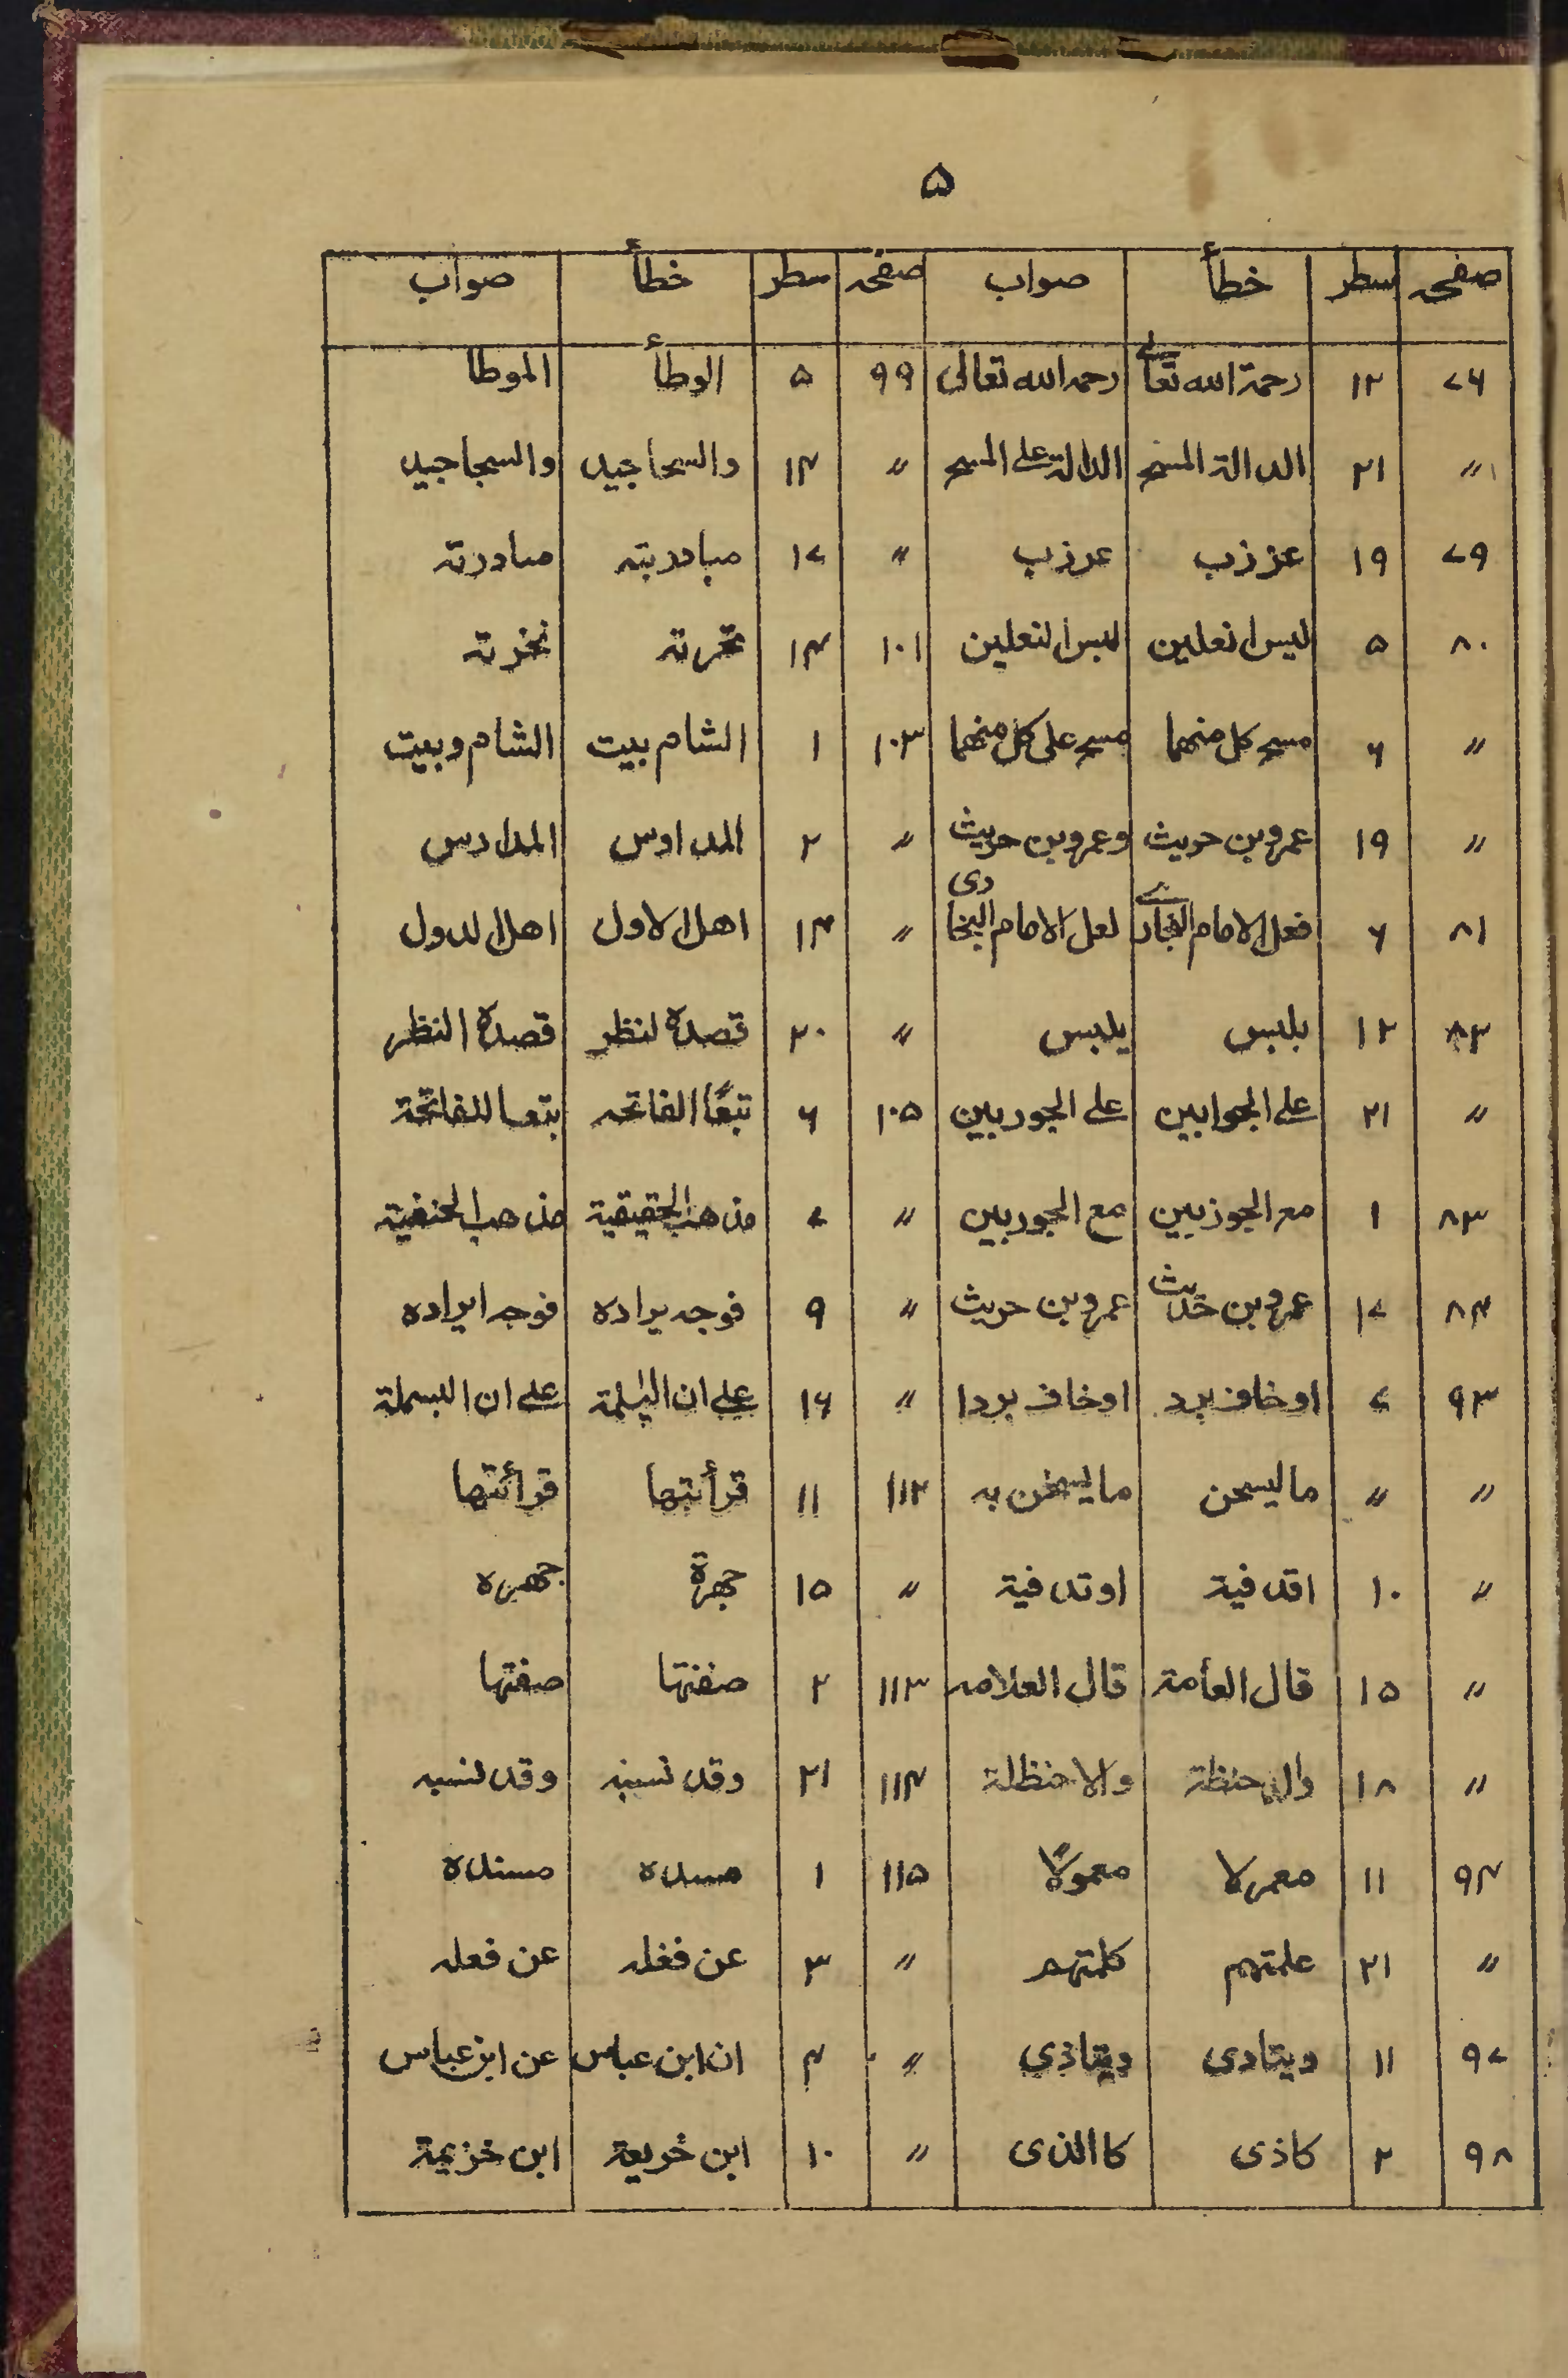 ۵
صفحہ سطر خطأ صواب صفحہ سطر خطأ صواب
۷۶ ۱۲ رحمة الله تعالے رحمه الله تعالى ۹۹ ۵ الوطأ الموطا
〃 ۲۱ الدالة المسح الدالة علے المسح 〃 ۱۴ والسحاجيد والسجاجيد
۷۹ ۱۹ عززب عرزب 〃 ۱۷ مبادربته مبادرته
۸۰ ۵ ليس انعلين لبس النعلين ۱۰۱ ۱۴ تحرته نخرته
〃 ۶ مسح كل منهما مسح على كل منهما ۱۰۳ ۱ الشام بيت الشام وبيت
〃 ۱۹ عمرو بن حويث وعمرو بن حريث 〃 ۲ المداوس المدارس
۸۱ ۶ فعل الامام البخارے لعل الامام البخاری 〃 ۱۴ اهل الاول اهل الدول
۸۲ ۱۲ بلبس يلبس 〃 ۲۰ قصدة لنظر قصدة النظر
〃 ۲۱ علے الجوابين علے الجوربين ۱۰۵ ۶ تبعًا الفاتحه بتعا للفاتحة
۸۳ ۱ مع الجوزبين مع الجوربين 〃 ۷ مذهب الحقيقية مذهب الحنفية
۸۴ ۱۷ عمرو بن حديث عمرو بن حريث 〃 ۹ فوجه يراده فوجه ايراده
۹۳ ۷ اوخاف برد اوخاف بردا 〃 ۱۶ علے ان البسلمة علے ان البسملة
〃 〃 ماليسحن مايسخن به ۱۱۲ ۱۱ قرأنتها قرائتها
〃 ۱۰ اقدفية اوتدفية 〃 ۱۵ جهرة جهره
〃 ۱۵ قال العأمة قال العلامه ۱۱۳ ۲ صفنتها صفتها
〃 ۱۸ والدحنظة والاحنظلة ۱۱۴ ۲۱ وقد نسبنه وقد نسبه
۹۴ ۱۱ معمرلا معمولًا ۱۱۵ ۱ مسده مسنده
〃 ۲۱ علمتهم كلمتهم 〃 ۳ عن فغله عن فعله
۹۷ ۱۱ ويتادى ويتاذي 〃 ۴ ان ابن عباس عن ابن عباس
۹۸ ۲ كاذى كاالذى 〃 ۱۰ ابن خريعة ابن خزيمة